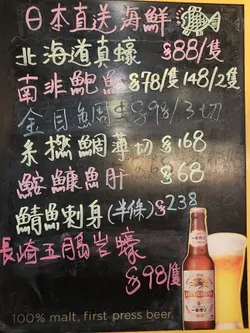 日本直送海鮮
北海道真蠔 $88/隻
南非鮑魚 $78/隻 148/2隻
金目鯛周 $98/3切
朱撚鯛薄切 $168
鮟鱇魚肝 $68
鯖魚刺身(半條) $238
長崎五島岩蠔
$98/隻
100% malt, first press beer